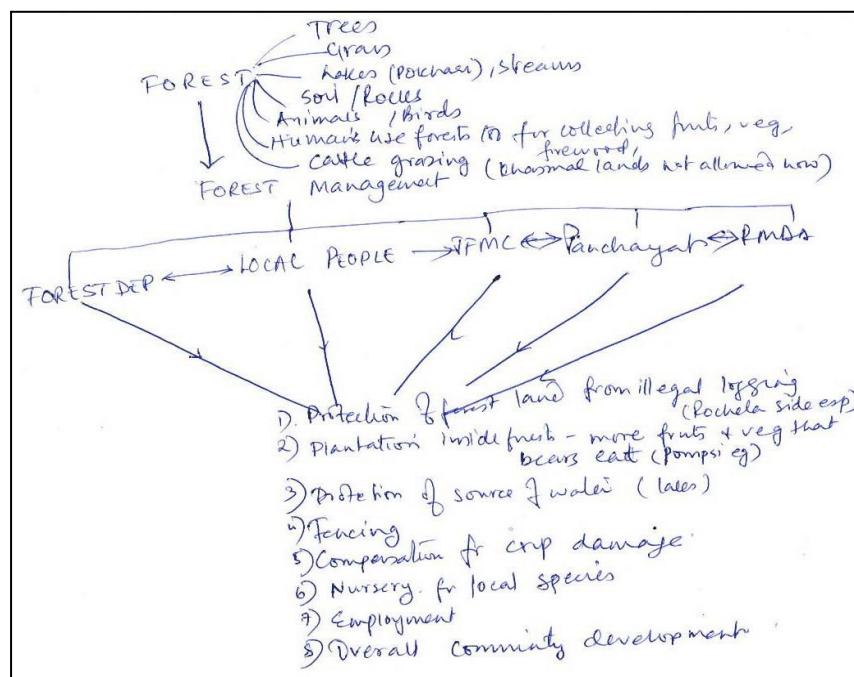 Trees
Grass
FOREST
Lakes (Pokhari), streams
Soil / Rocks
Animals / Birds
Humans use forests for for collecting fruits, veg,
firewood,
Cattle grazing (khasmal lands not allowed now)
FOREST Management
FOREST DEP LOCAL PEOPLE JFMC Panchayat RMDA
1). Protection of forest land from illegal logging
(Rochela side esp)
2) Plantation inside - more fruts & veg that
bears eatt (Pompsi eg)
3) Protetion of source of water (lakes)
4) Fencing
5) Compensation fr crop damage
6) Nursery fr local species
7) Employment
8) Overall community development